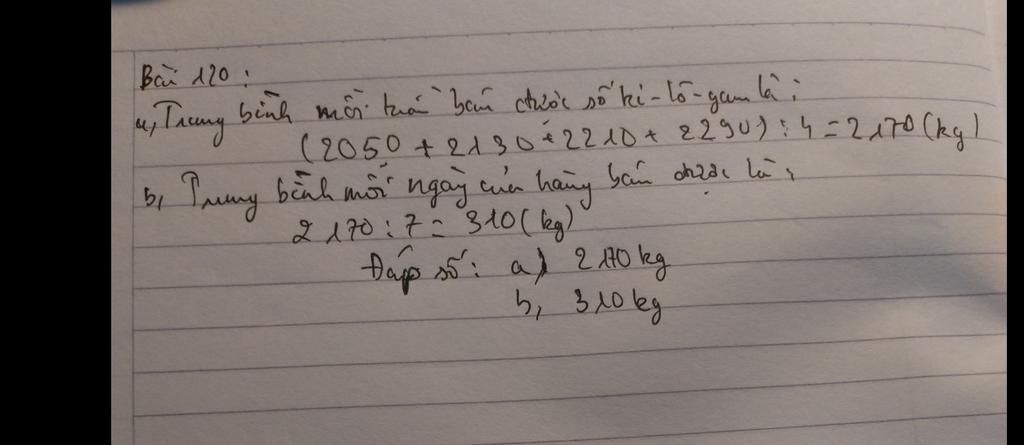 Bài 120 :
a, Trung bình mỗi tuần bán được số ki-lô-gam là :
(2050 + 2130 + 2210 + 2290) : 4 = 2170 (kg)
b, Trung bình mỗi ngày cửa hàng bán được là :
2170 : 7 = 310 (kg)
Đáp số : a) 2170 kg
b, 310 kg